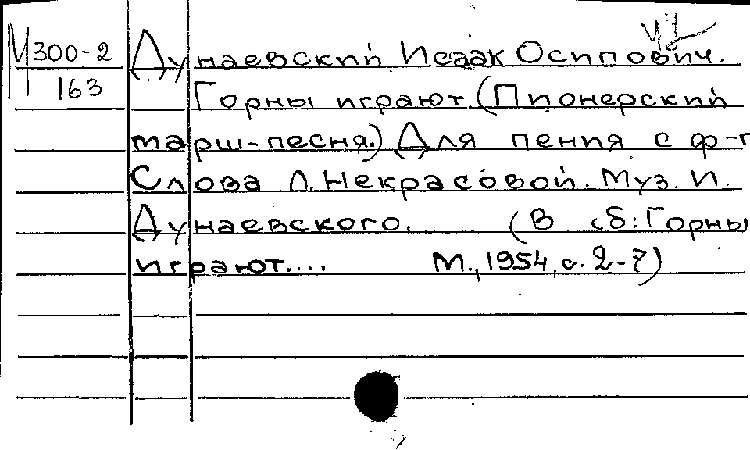 М 300-2
163
Дунаевский Исаак Осипович.
Горны играют. (Пионерский
марш-песня.) Для пения с ф-п
Слова Л. Некрасовой. Муз. И.
Дунаевского. (В сб: Горны
играют.... М., 1954, с. 2-7)